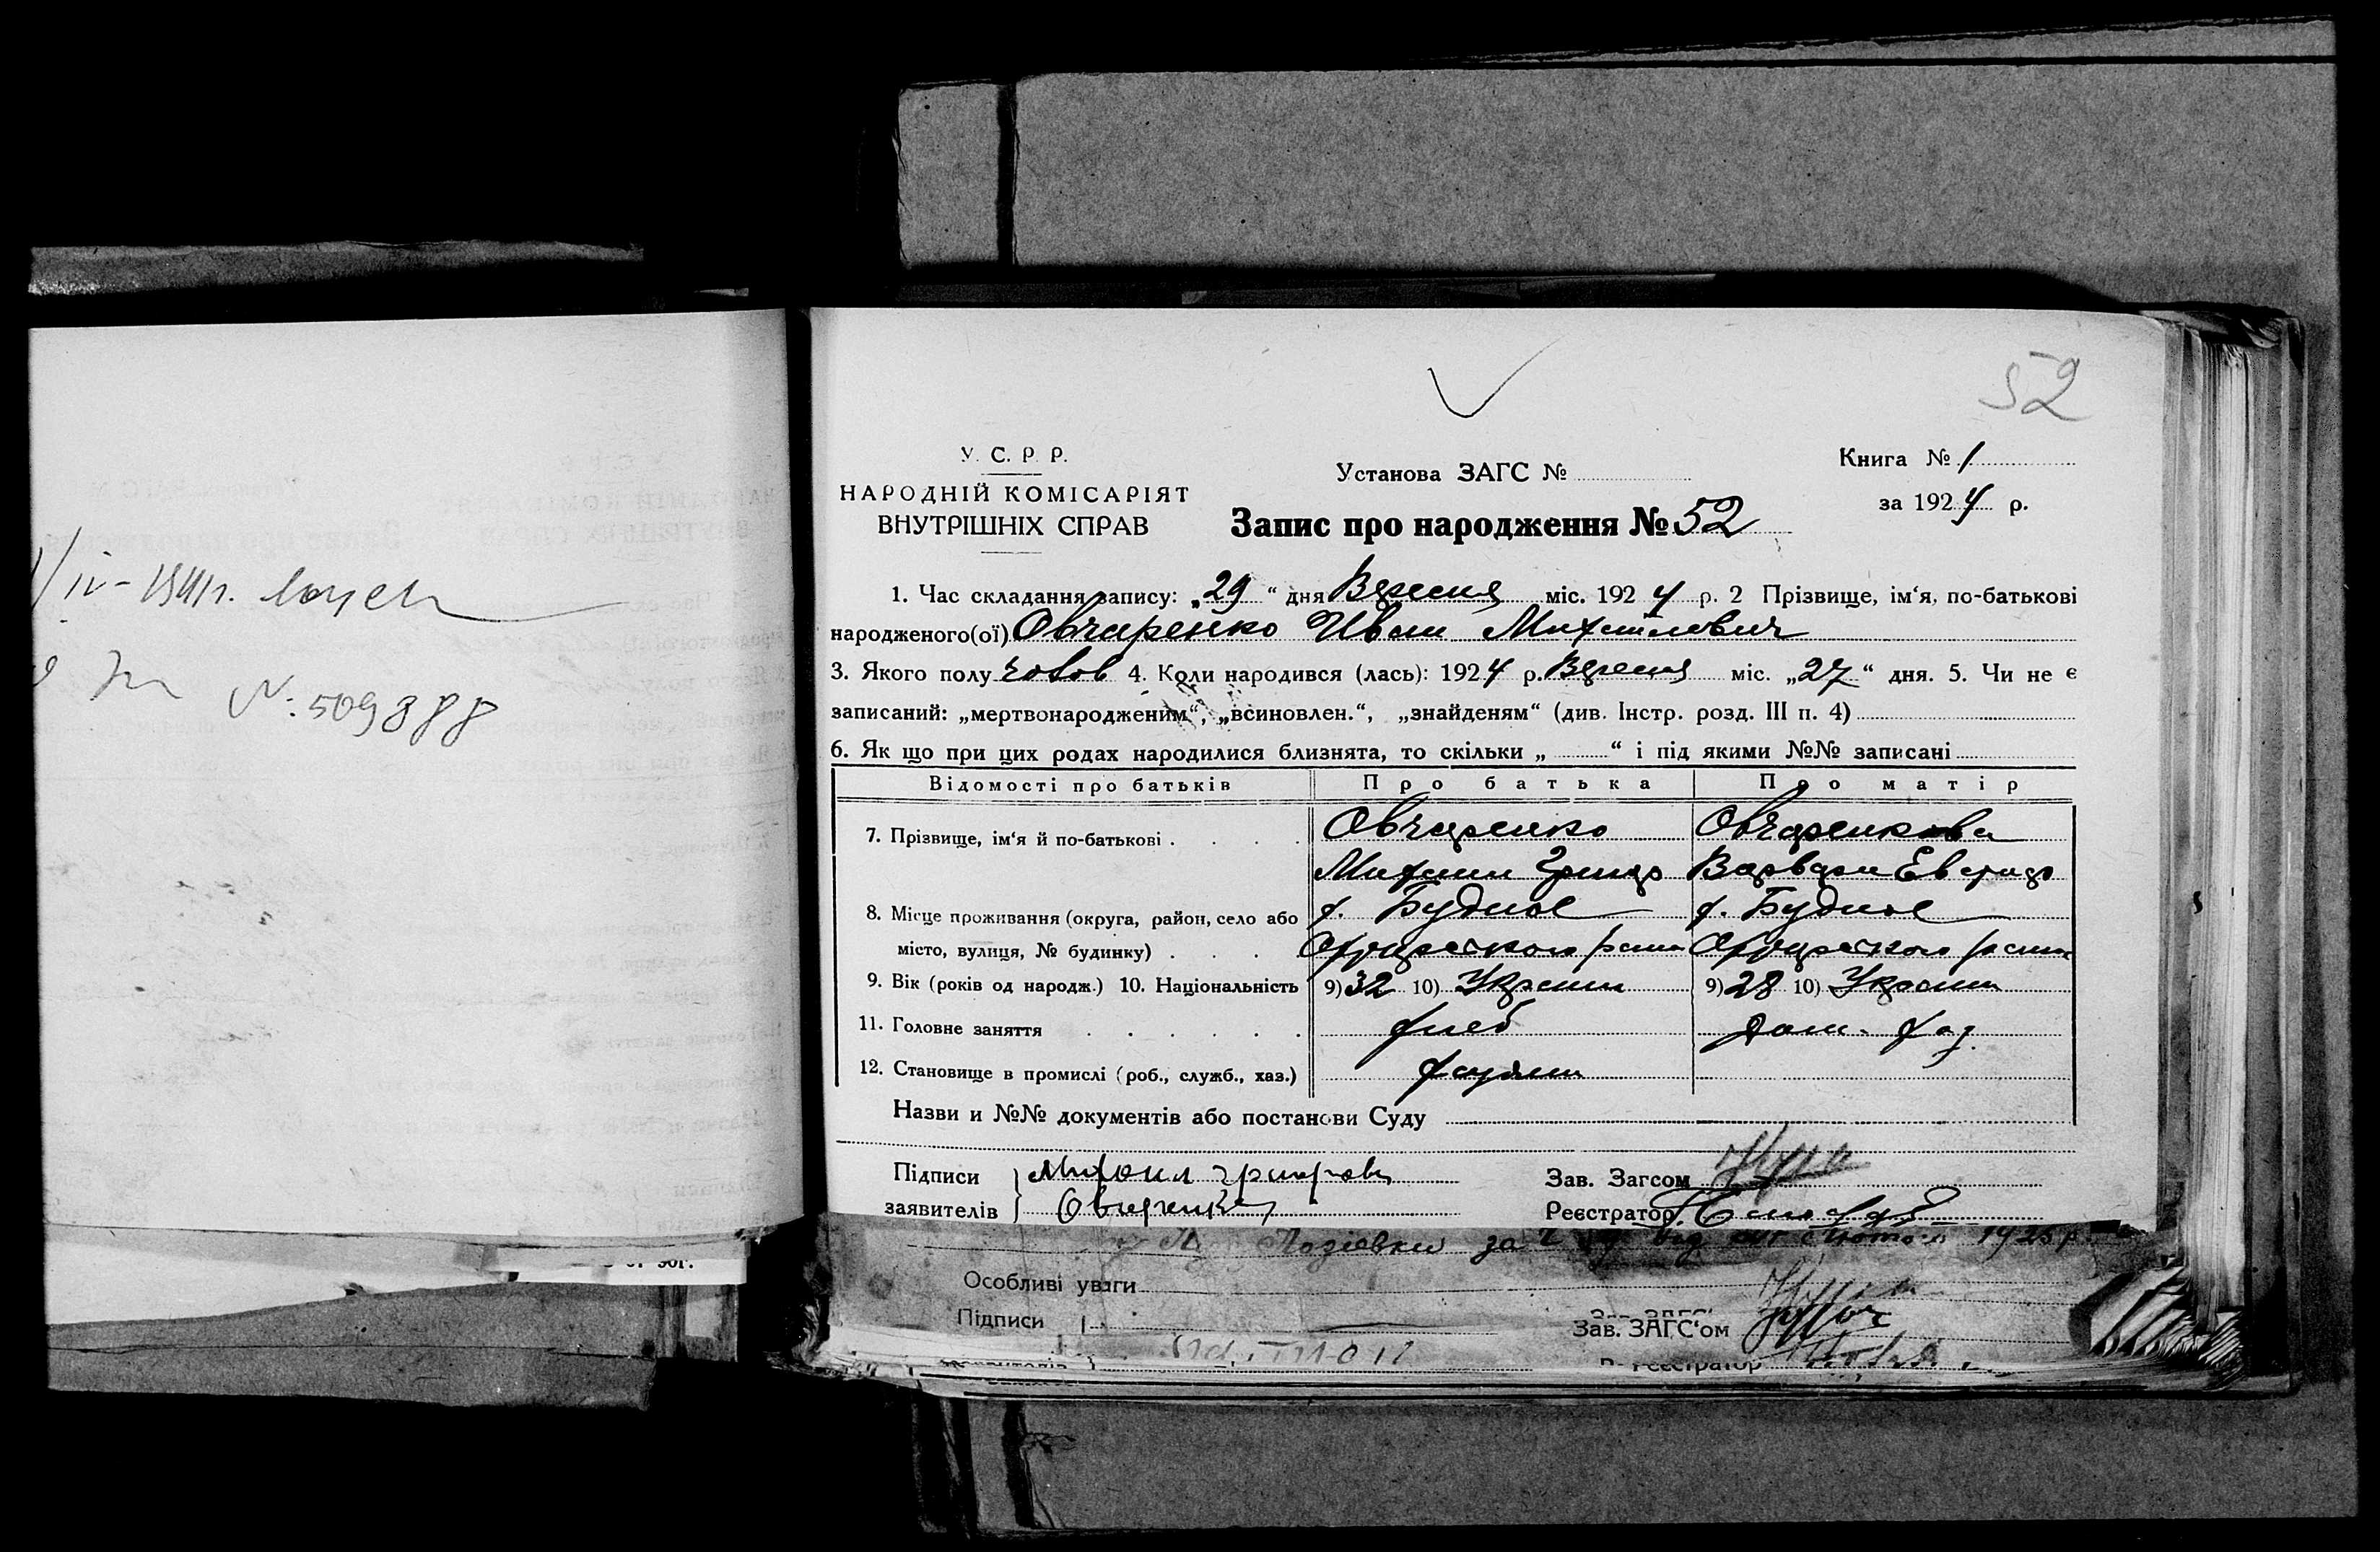 52
У. С. Р. Р.
НАРОДНІЙ КОМІСАРІЯТ
ВНУТРІШНІХ СПРАВ
Установа ЗАГС №
Книга № 1
за 1924 р.
Запис про народження № 52
1. Час складання запису: „29“ дня Вересня міс. 1924 р. 2 Прізвище, ім‘я, по-батькові
народженого(ої) Овчаренко Иван Михайлович
3. Якого полу чолов 4. Коли народився (лась): 1924 р. Вересня міс. „27“ дня. 5. Чи не є
записаний: „мертвонародженим“, „всиновлен.“, „знайденям“ (див. Інстр. розд. III п. 4)
6. Як що при цих родах народилися близнята, то скільки „ “ і під якими №№ записані
Відомості про батьків Про батька Про матір
7. Прізвище, ім‘я й по-батькові . . . . Овчаренко Овчаренкова
Михаил Григор Варвара
8. Місце проживання (округа, район, село або х. Будное х. Будное
місто, вулиця, № будинку) . . .
9. Вік (років од народж.) 10. Національність 9) 32 10) Украин 9) 28 10) Украин
11. Головне заняття . . . . . . хлеб дом. хоз.
12. Становище в промислі (роб., служб., хаз.) хозяин
Назви и №№ документів або постанови Суду
Підписи Михаил Григоров
заявителів Овчаренко
Зав. Загсом
Реєстратор
за 1925 р.
Особливі уваги
Підписи
Зав. ЗАГС‘ом
Реєстратор
IV-1941г.
№: 509888